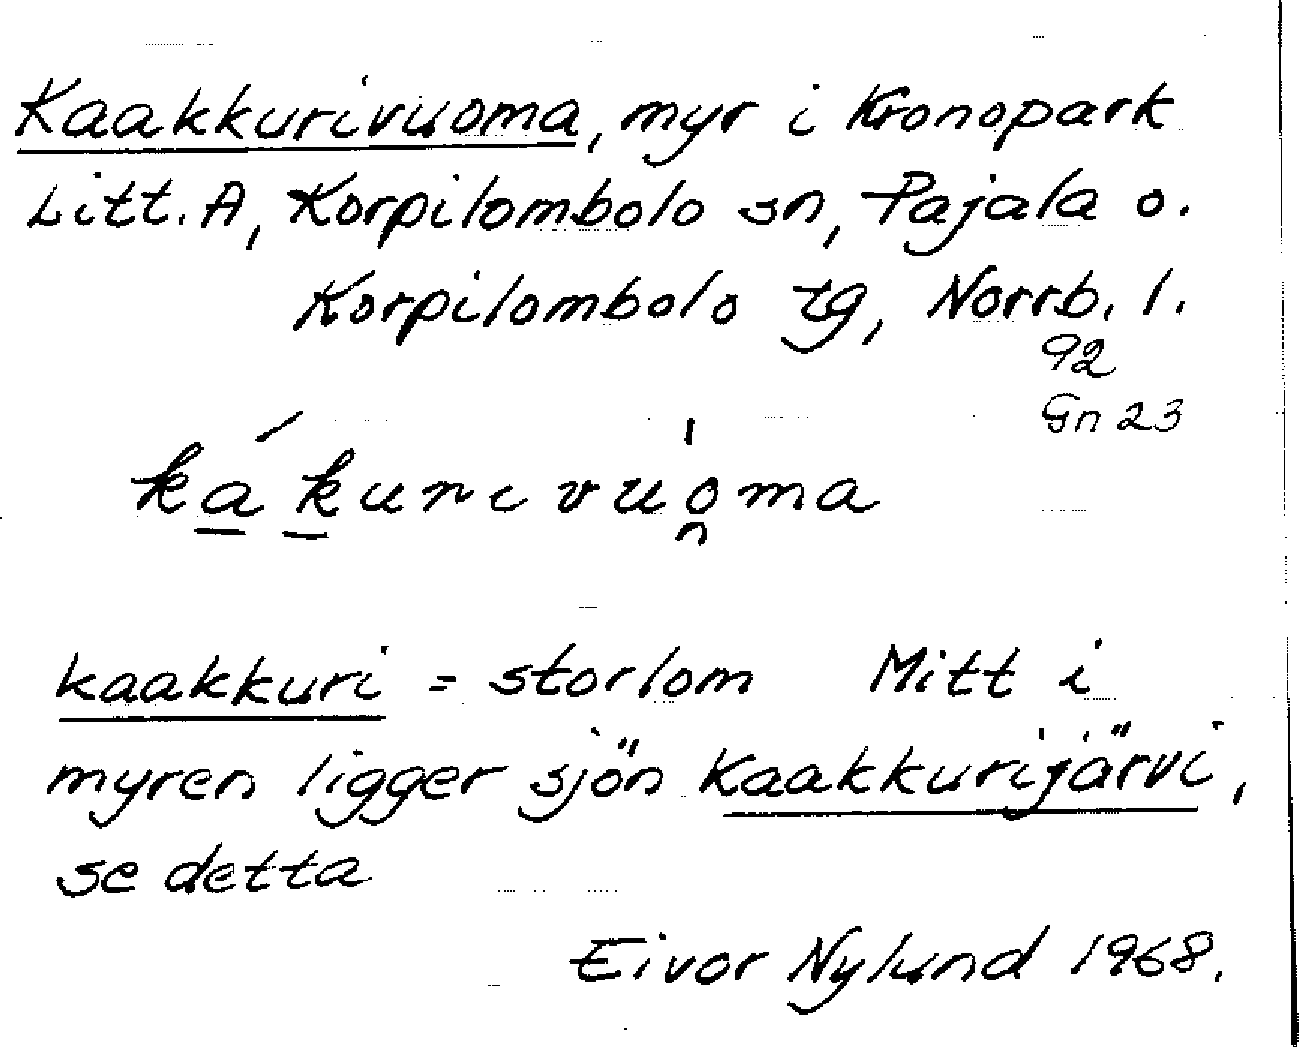 Kaakkurivuoma, myr i Kronopark
Litt. A, Korpilombolo sn, Pajala o.
Korpilombolo tg, Norrb. l.
92
Gn 23
kákurivuoma
kaakkuri = storlom Mitt i
myren ligger sjön Kaakkurijärvi,
se detta
Eivor Nylund 1968.